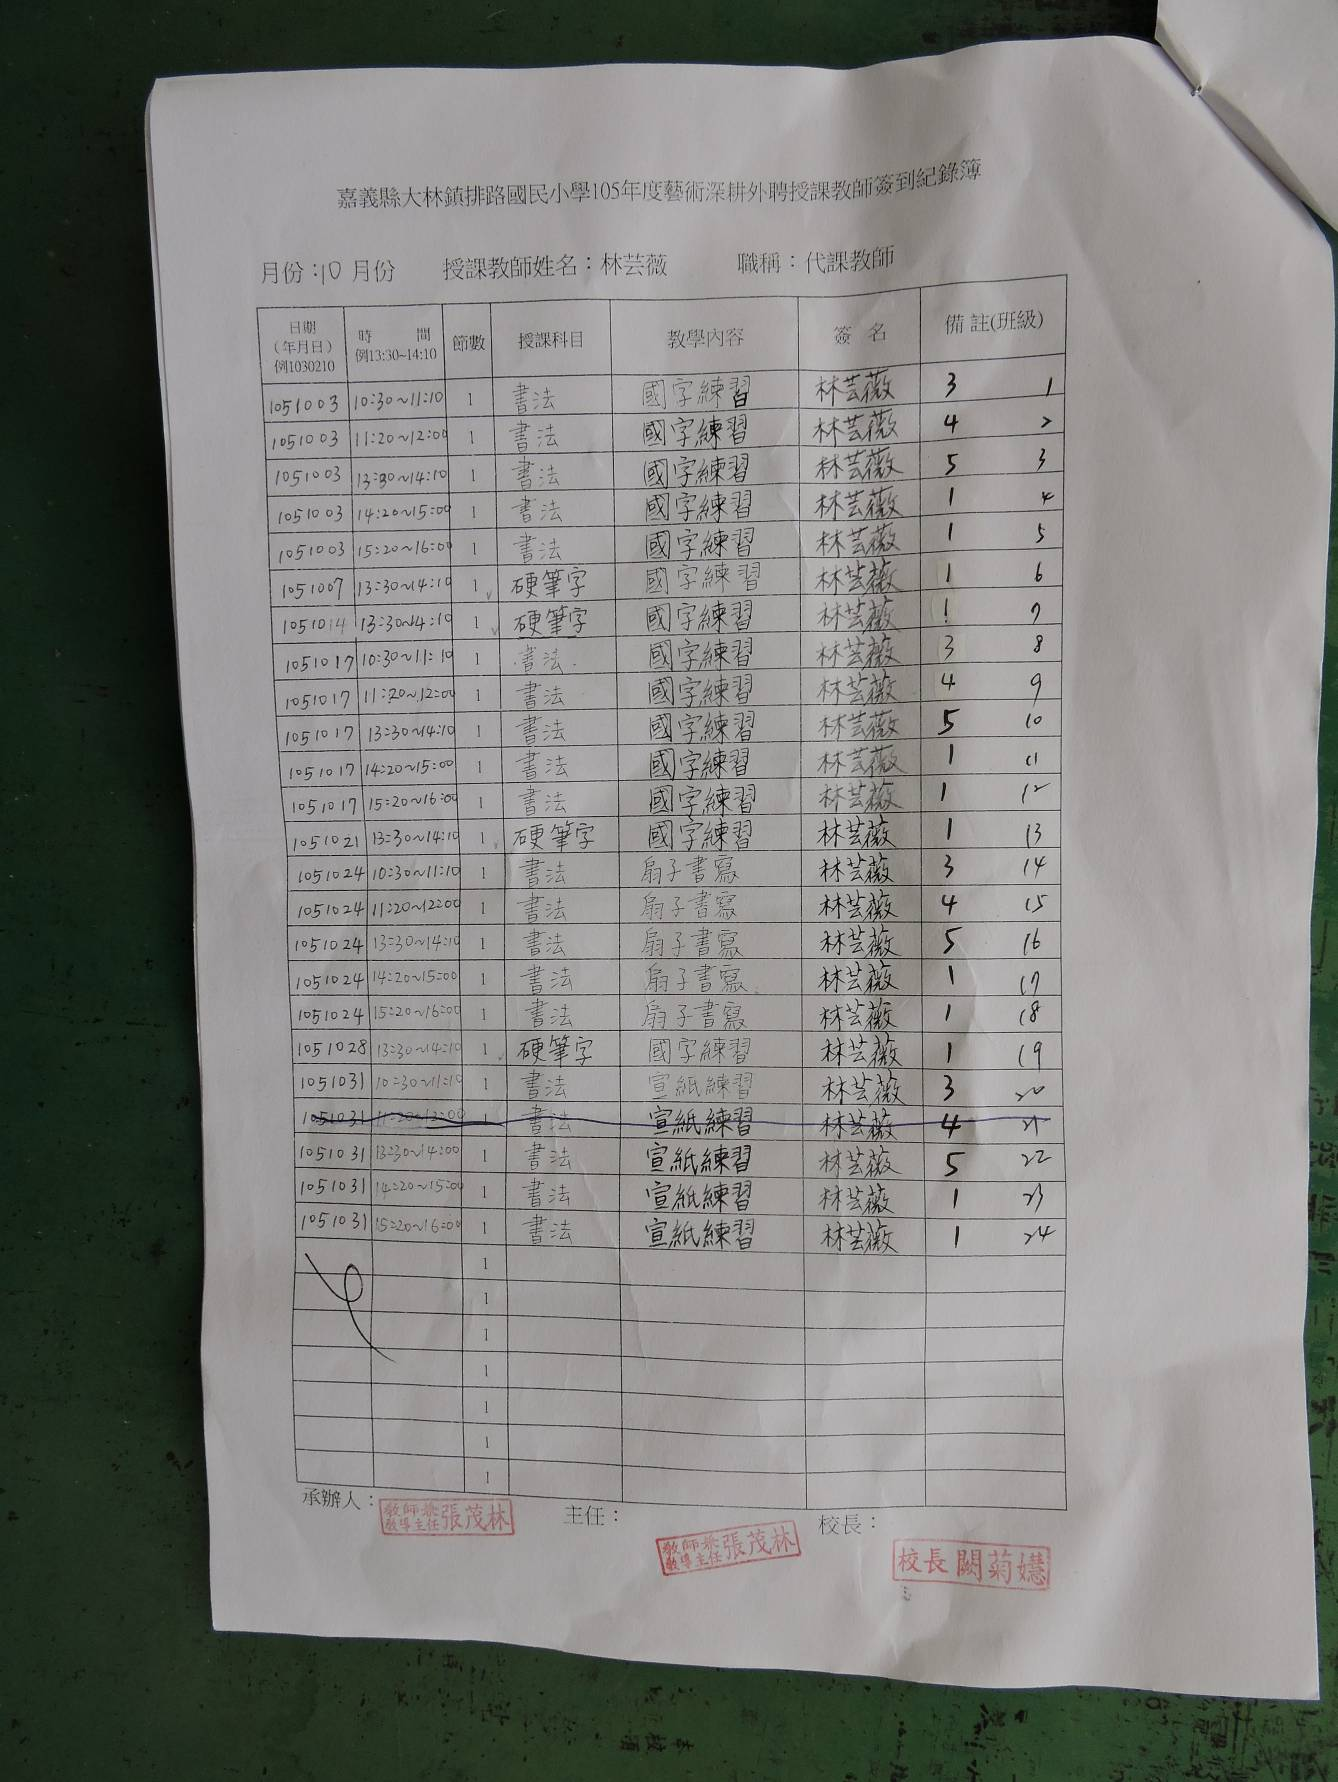 嘉義縣大林鎮排路國民小學105年度藝術深耕外聘授課教師簽到紀錄簿
月份：10 月份 授課教師姓名：林芸薇 職稱：代課教師
日期（年月日）例1030210 時 間 例13:30~14:10 節數 授課科目 教學內容 簽 名 備 註(班級)
1051003 10:30~11:10 1 書法 國字練習 林芸薇 3 1
1051003 11:20~12:00 1 書法 國字練習 林芸薇 4 2
1051003 13:30~14:10 1 書法 國字練習 林芸薇 5 3
1051003 14:20~15:00 1 書法 國字練習 林芸薇 1 4
1051003 15:20~16:00 1 書法 國字練習 林芸薇 1 5
1051007 13:30~14:10 1 硬筆字 國字練習 林芸薇 1 6
1051014 13:30~14:10 1 硬筆字 國字練習 林芸薇 1 7
1051017 10:30~11:10 1 書法 國字練習 林芸薇 3 8
1051017 11:20~12:00 1 書法 國字練習 林芸薇 4 9
1051017 13:30~14:10 1 書法 國字練習 林芸薇 5 10
1051017 14:20~15:00 1 書法 國字練習 林芸薇 1 11
1051017 15:20~16:00 1 書法 國字練習 林芸薇 1 12
1051021 13:30~14:10 1 硬筆字 國字練習 林芸薇 1 13
1051024 10:30~11:10 1 書法 扇子書寫 林芸薇 3 14
1051024 11:20~12:00 1 書法 扇子書寫 林芸薇 4 15
1051024 13:30~14:10 1 書法 扇子書寫 林芸薇 5 16
1051024 14:20~15:00 1 書法 扇子書寫 林芸薇 1 17
1051024 15:20~16:00 1 書法 扇子書寫 林芸薇 1 18
1051028 13:30~14:10 1 硬筆字 國字練習 林芸薇 1 19
1051031 10:30~11:10 1 書法 宣紙練習 林芸薇 3 20
1051031 11:20~12:00 1 書法 宣紙練習 林芸薇 4 21
1051031 13:30~14:00 1 書法 宣紙練習 林芸薇 5 22
1051031 14:20~15:00 1 書法 宣紙練習 林芸薇 1 23
1051031 15:20~16:00 1 書法 宣紙練習 林芸薇 1 24
1
1
1
1
1
1
1
承辦人： 教師兼教導主任 張茂林 主任： 教師兼教導主任 張茂林 校長： 校長 闕菊嬑